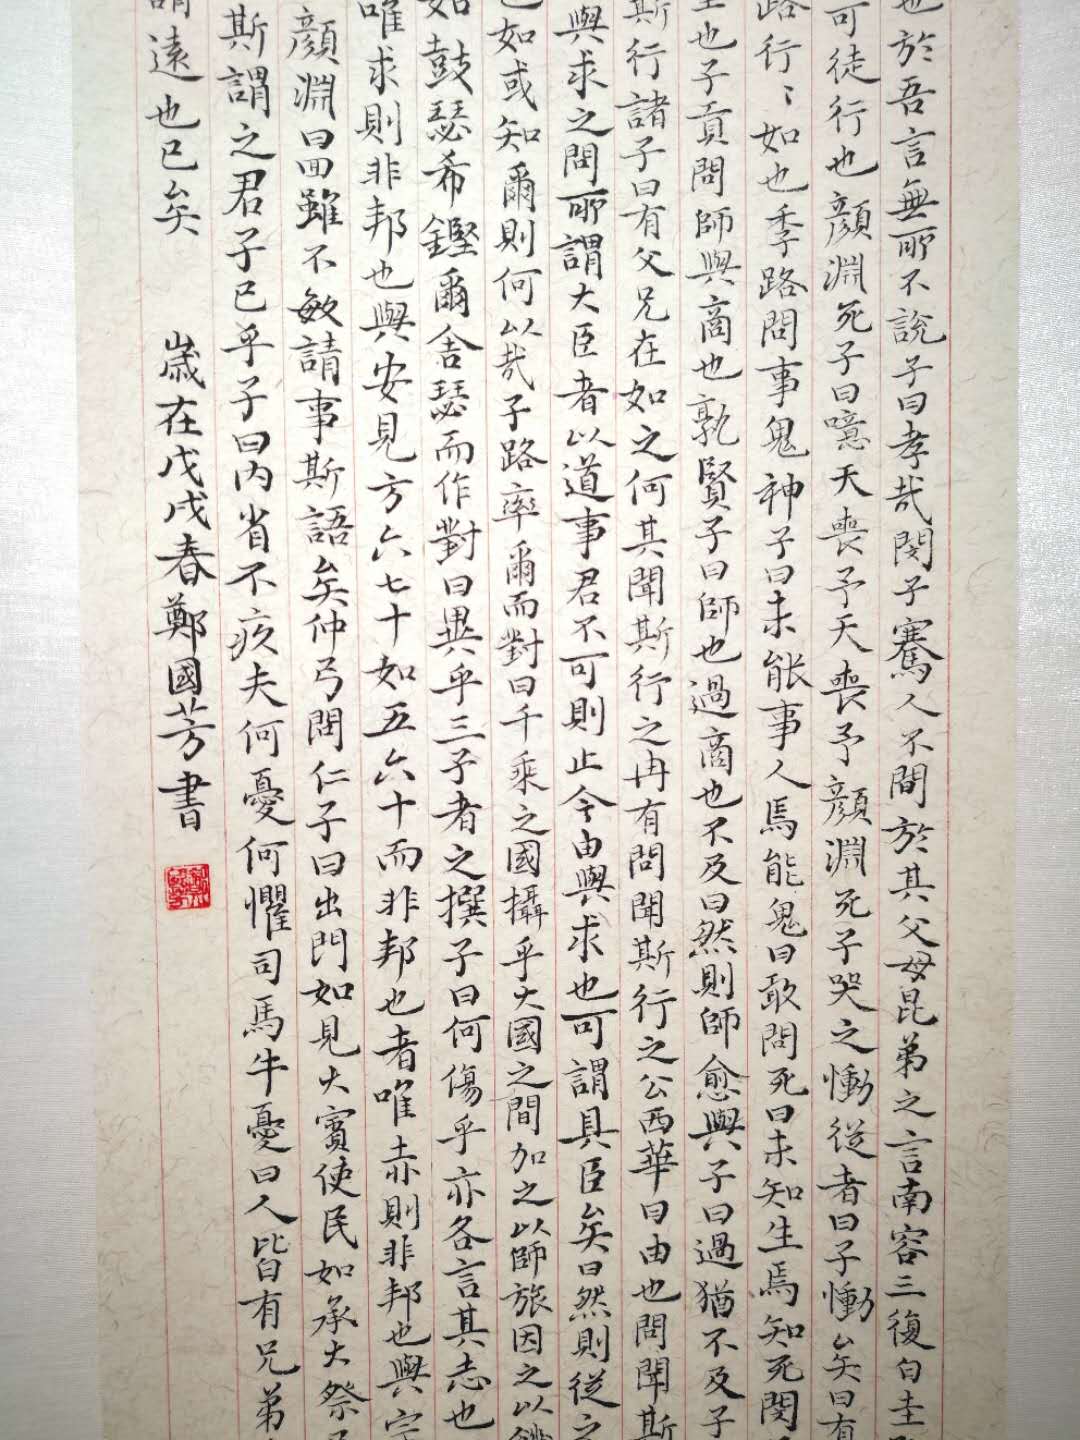 也於吾言無所不說子曰孝哉閔子騫人不間於其父母昆弟之言南容三復白圭
可徒行也顏淵死子曰噫天喪予天喪予顏淵死子哭之慟從者曰子慟矣曰有
路行〻如也季路問事鬼神子曰未能事人焉能鬼曰敢問死曰未知生焉知死閔
也子貢問師與商也孰賢子曰師也過商也不及曰然則師愈與子曰過猶不及子
斯行諸子曰有父兄在如之何其聞斯行之冉有問聞斯行之公西華曰由也問聞斯
與求之問所謂大臣者以道事君不可則止今由與求也可謂具臣矣曰然則從之
也如或知爾則何以哉子路率爾而對曰千乘之國攝乎大國之間加之以師旅因之以
如鼓瑟希鏗爾舍瑟而作對曰異乎三子者之撰子曰何傷乎亦各言其志也
唯求則非邦也與安見方六七十如五六十而非邦也者唯赤則非邦也與宗
顏淵曰回雖不敏請事斯語矣仲弓問仁子曰出門如見大賓使民如承大祭
斯謂之君子已乎子曰內省不疚夫何憂何懼司馬牛憂曰人皆有兄弟
謂遠也已矣 歲在戊戌春鄭國芳書